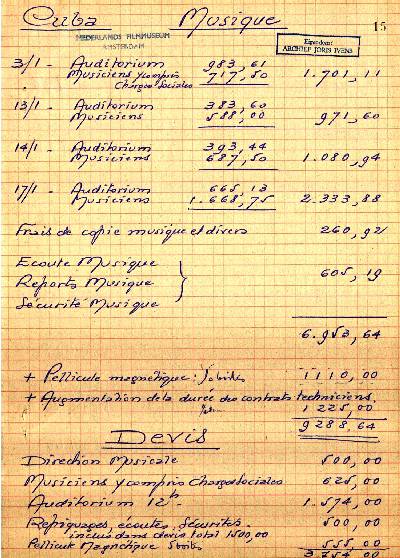 Cuba Musique
15
NEDERLANDS FILMMUSEUM
AMSTERDAM
Eigendom:
ARCHIEF JORIS IVENS
3/1 - Auditorium 983,61
Musiciens y compris 717,50 1.701,11
Charges Sociales
13/1 - Auditorium 383,60
Musiciens 588,00 971,60
14/1 - Auditorium 393,44
Musiciens 687,50 1.080,94
17/1 - Auditorium 665,13
Musiciens 1.668,75 2.333,88
Frais de copie musique et divers 260,92
Ecoute Musique
Reports Musique 605,19
Sécurité Musique
6.953,64
+ Pellicule magnétique: 1110,00
+ Augmentation de la durée des contrats techniciens.
1225,00
9288,64
Devis
Direction Musicale 500,00
Musiciens y compris Charges Sociales 625,00
Auditorium 12h - 1.574,00
Repiquages, ecoutes, Sécurités - 500,00
inclus dans devis total 1500,00
Pellicul Magnétique 5 boîtes 555,00
3.754,00